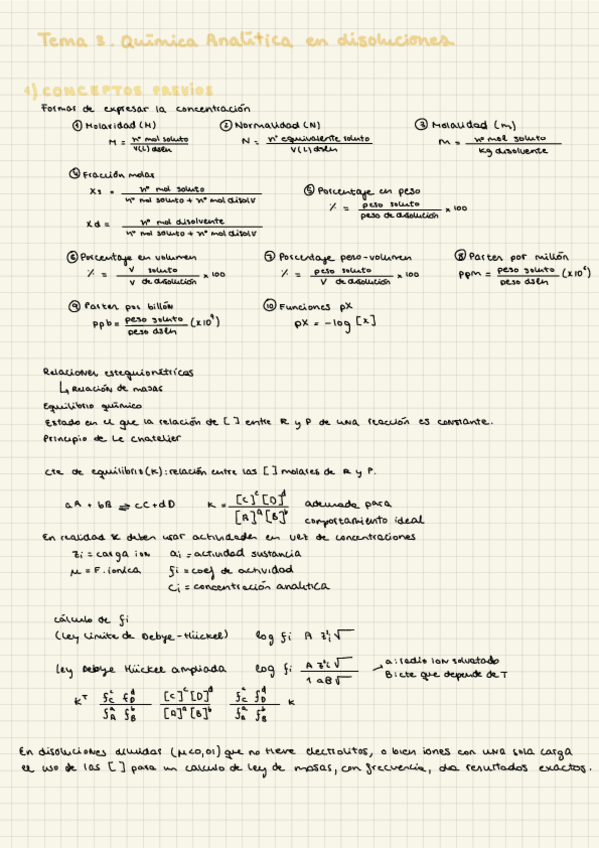 Tema 3. Química Analítica en disoluciones
1) CONCEPTOS PREVIOS
Formas de expresar la concentración
① Molaridad (M) ② Normalidad (N) ③ Molalidad (m)
M = nº mol soluto / V(L) dsln N = nº equivalente soluto / V(L) dsln m = nº mol soluto / Kg disolvente
④ Fracción molar
Xs = nº mol soluto / nº mol soluto + nº mol disolv
⑤ Porcentaje en peso
% = peso soluto / peso de disolución x 100
Xd = nº mol disolvente / nº mol soluto + nº mol disolv
⑥ Porcentaje en volumen ⑦ Porcentaje peso-volumen ⑧ Partes por millón
% = V soluto / V de disolución x 100 % = peso soluto / V de disolución x 100 ppm = peso soluto / peso dsln (x10⁶)
⑨ Partes por billón ⑩ Funciones pX
ppb = peso soluto / peso dsln (x10⁹) pX = -log [x]
Relaciones estequiométricas
↳ Relación de masas
Equilibrio químico
Estado en el que la relación de [ ] entre R y P de una reacción es constante.
Principio de Le Chatelier
Cte de equilibrio (K): relación entre las [ ] molares de R y P.
aA + bB ⇌ cC + dD K = [C]ᶜ [D]ᵈ / [A]ᵃ [B]ᵇ adecuada para
comportamiento ideal
En realidad se deben usar actividades en vez de concentraciones
Zi = carga ion ai = actividad sustancia
μ = F. ionica fi = coef de actividad
Ci = concentración analítica
cálculo de fi
(Ley Límite de Debye-Hückel) log fi A Z²i √
ley Debye Hückel ampliada log fi A Z²i √ / 1 aB √ → a: radio ion solvatado
B: cte que depende de T
Kᵀ fᶜC fᵈD / fᵃA fᵇB [C]ᶜ [D]ᵈ / [A]ᵃ [B]ᵇ fᶜC fᵈD / fᵃA fᵇB K
En disoluciones diluidas (μ<0,01) que no tiene electrolitos, o bien iones con una sola carga
el uso de las [ ] para un calculo de ley de masas, con frecuencia, da resultados exactos.